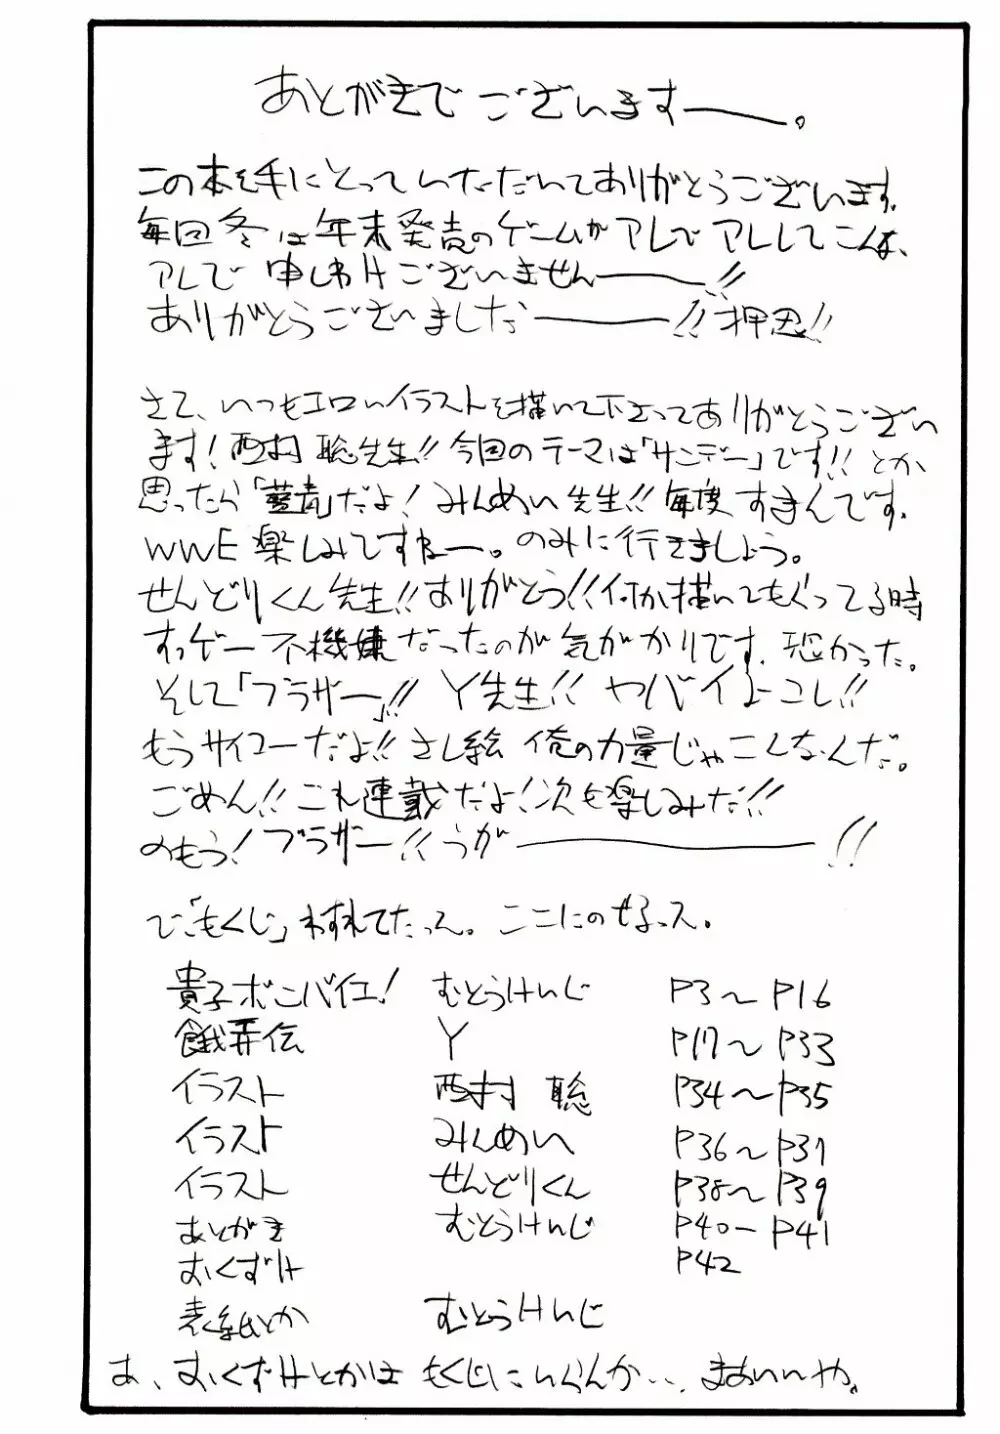 あとがきでございますー。
この本を手にとっていただいてありがとうございます。
毎回冬は年末発売のゲームがアレでアレしてこんな、
アレで申しわけございませんー!!
ありがとうございましたー!!押忍!!
さて、いつもエロいイラストを描いて下さってありがとうござい
ます!西村聡先生!!今回のテーマは「サンデー」です!!とか
思ったら「藍青」だよ!みんめい先生!!毎度すまんです。
WWE楽しみですねー。のみに行きましょう。
せんどりくん先生!!ありがとう!!何か描いてもらってる時
すっげー不機嫌だったのが気がかりです。恐かった。
そして「ブラザー」!!Y先生!!ヤバイよコレ!!
もうサイコーだよ!!さし絵俺の力量じゃこんなんだ。
ごめん!!これ連載だよ!次も楽しみだ!!
のもう!ブラザー!!うがー!!
で「もくじ」わすれてたっス。ここにのせるっス。
貴子ボンバイエ! むとうけいじ P3〜P16
餓弄伝 Y P17〜P33
イラスト 西村 聡 P34〜P35
イラスト みんめい P36〜P37
イラスト せんどりくん P38〜P39
あとがき むとうけいじ P40ーP41
おくずけ P42
表紙とか むとうけいじ
あ、おくずけとかは もくじにいらんか…まあいいや。